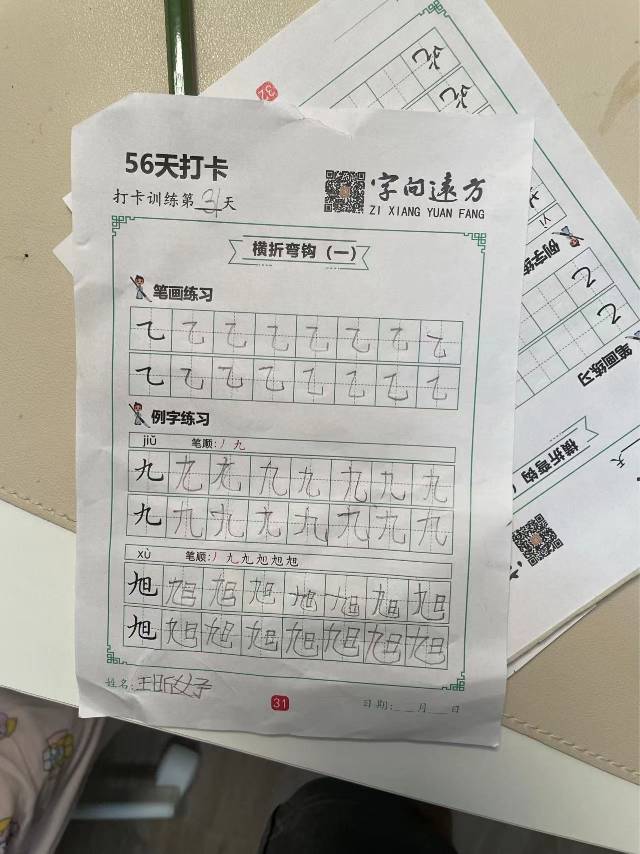 56天打卡
打卡训练第31天
字向远方
ZI XIANG YUAN FANG
横折弯钩（一）
笔画练习
乙 乙 乙 乙 乙 乙 乙 乙
乙 乙 乙 乙 乙 乙 乙 乙
例字练习
jiǔ 笔顺:丿九
九 九 九 九 九 九 九 九
九 九 九 九 九 九 九 九
xù 笔顺:丿九九旭旭旭
旭 旭 旭 旭 旭 旭 旭 旭
旭 旭 旭 旭 旭 旭 旭 旭
姓名:王昕
31
日期:__月__日
例字练
笔画练习
横折弯钩（
天